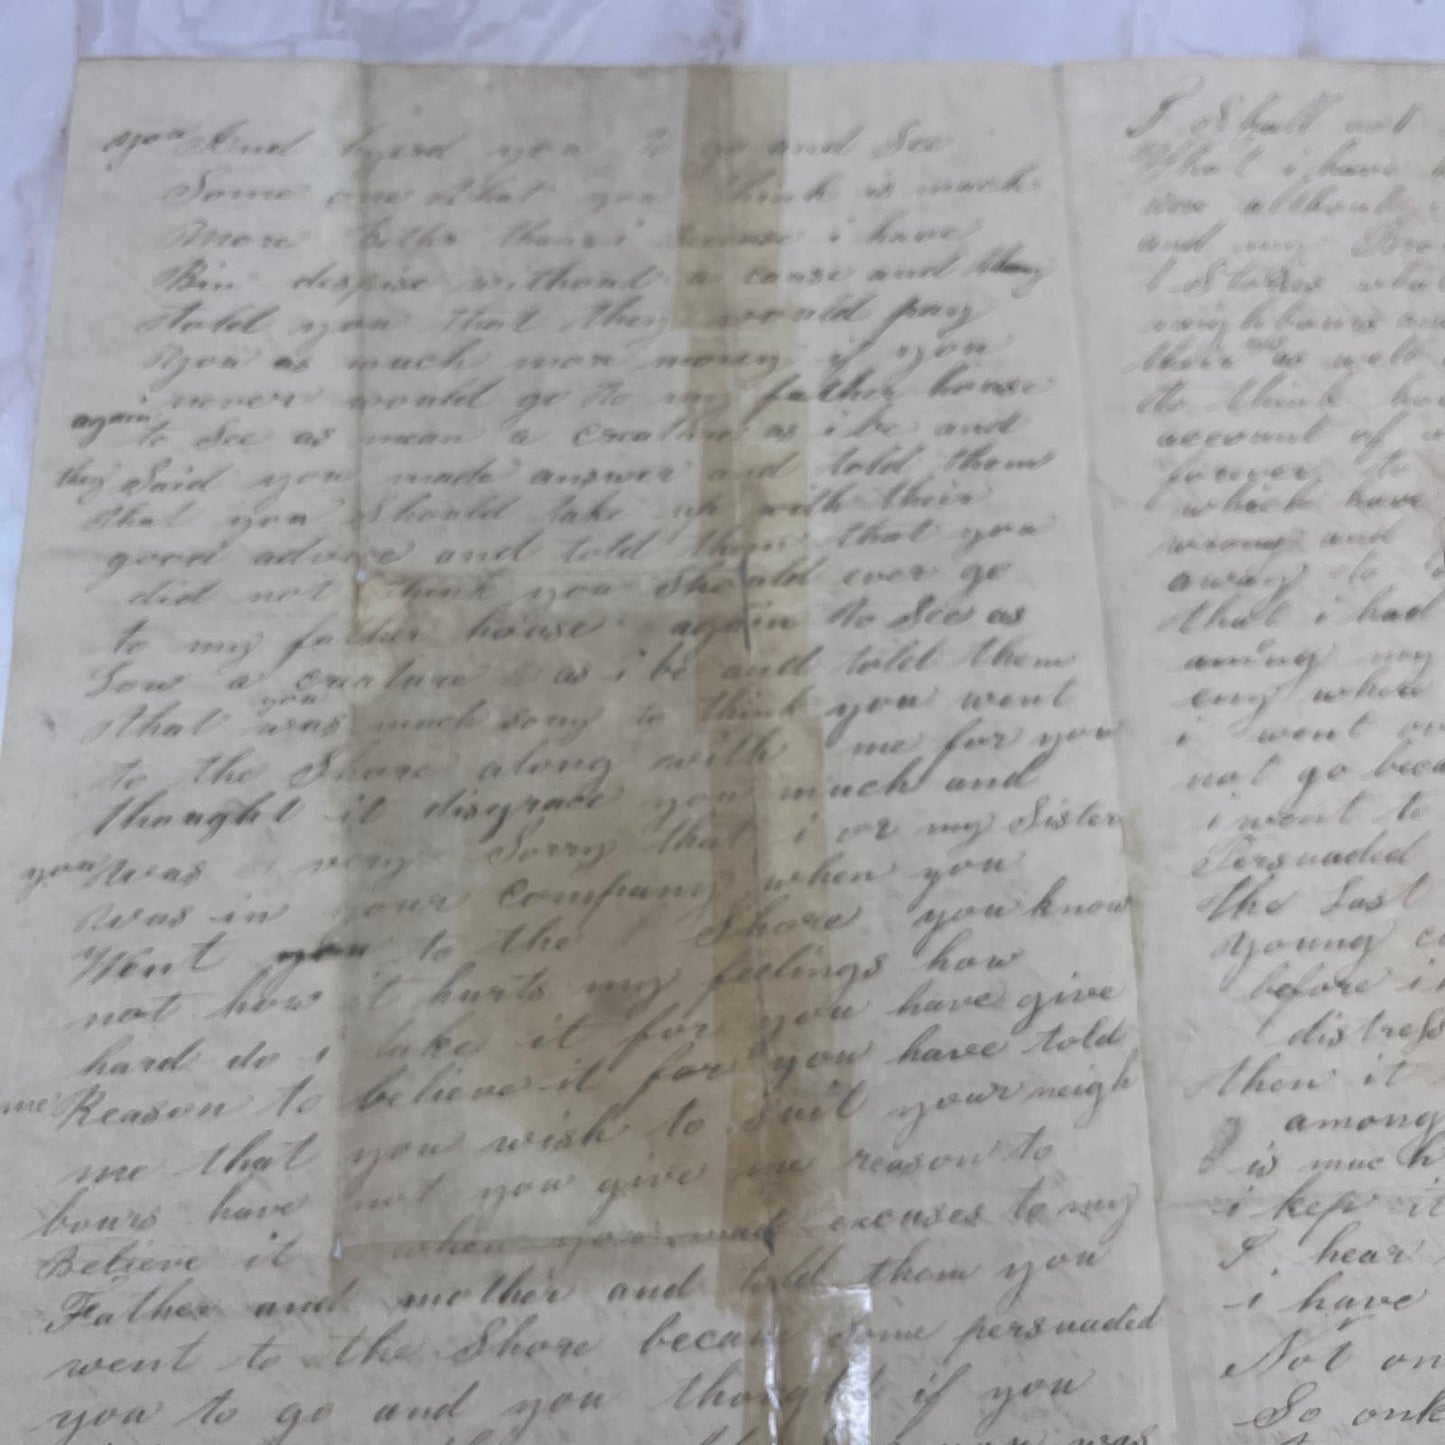 you and hyerd you to go and See
Some one that you think is much
More bether than i because i have
Bin despise without a cause and they
told you that they would pay
you as much mon money if you
never would go to my father house
again to See as mean a creature as i be and
they Said you made answer and told them
that you Should take up with their
good advice and told them that you
did not think you Should ever go
to my father house again to See as
Low a creature as i be and told them
that you was much sory to think you went
to the Shore along with me for you
thought it disgrace you much and
you was very Sorry that i or my Sister
was in your company when you
Went to the Shore you know
not how it hurts my feelings how
hard do i take it for you have give
me Reason to believe it for you have told
me that you wish to Suit your neigh
bours have not you give me reason to
Believe it when you mad excuses to my
Father and mother and told them you
went to the Shore becau Some persuaded
you to go and you thought if you
was
I Shall not
What i have
me allthout
and my Bro
Stories what
neighbours an
their as well
to think ho
account of
forever to
which have
wrong and
away to
that i had
among my
eny where
i went or
not go beca
i went to
Persuaded
the Last
young c
before i
distress
then it
among
is much
i kep it
I hear
i have
Not on
So onk